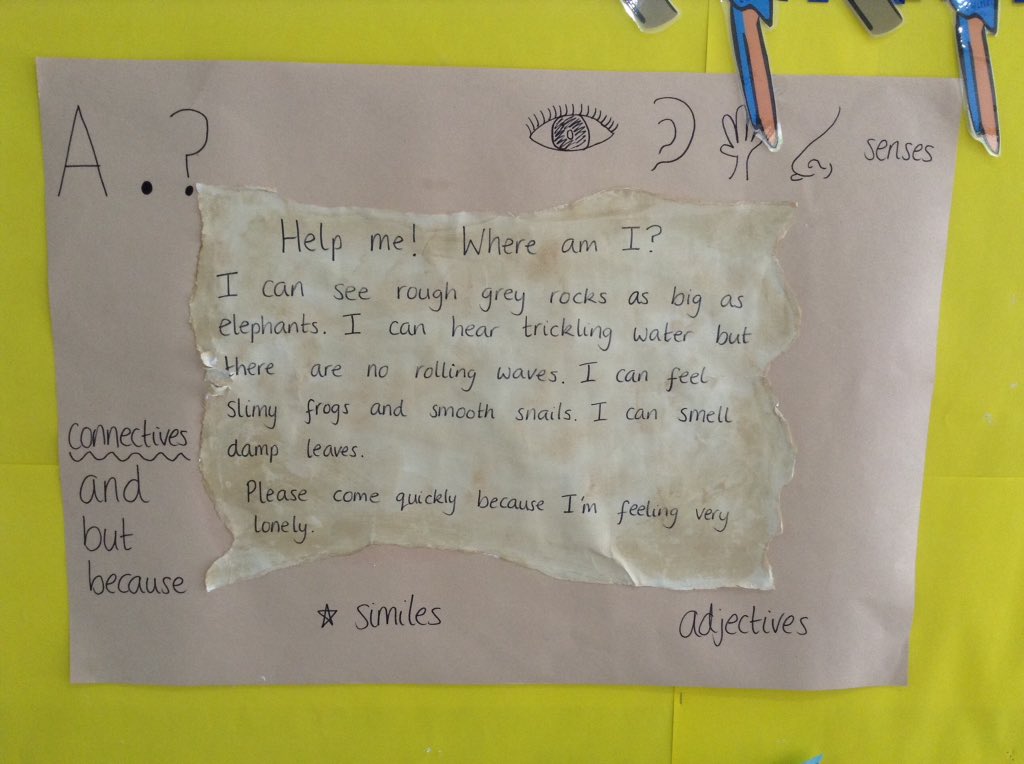 A . ?
senses
Help me! Where am I?
I can see rough grey rocks as big as
elephants. I can hear trickling water but
there are no rolling waves. I can feel
slimy frogs and smooth snails. I can smell
damp leaves.
Please come quickly because I'm feeling very
lonely.
connectives
and
but
because
☆ similes
adjectives